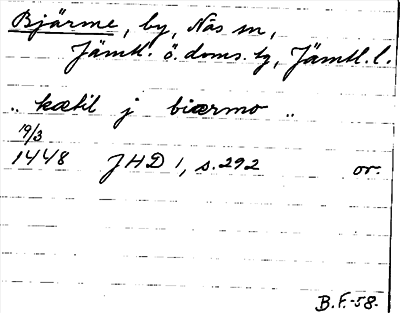 Bjärme, by, Näs sn,
Jämtl. ö. doms. tg, Jämtl. l.
„ kætil j biærmo „
19/3
1448 JHD 1, s. 292 or.
B.F.-58.